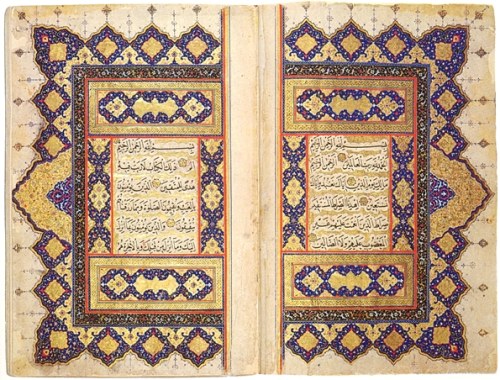 بسم الله الرحمن الرحيم
الحمد لله رب العالمين الرحمن الرحيم
ملك يوم الدين اياك نعبد واياك
نستعين اهدنا الصراط المستقيم
صراط الذين انعمت عليهم غير
المغضوب عليهم ولا الضالين
بسم الله الرحمن الرحيم
الم ذلك الكتاب لا ريب فيه
هدى للمتقين الذين يؤمنون
بالغيب ويقيمون الصلوة ومما رزقناهم
ينفقون والذين يؤمنون بما
انزل اليك وما انزل من قبلك وبالاخرة هم